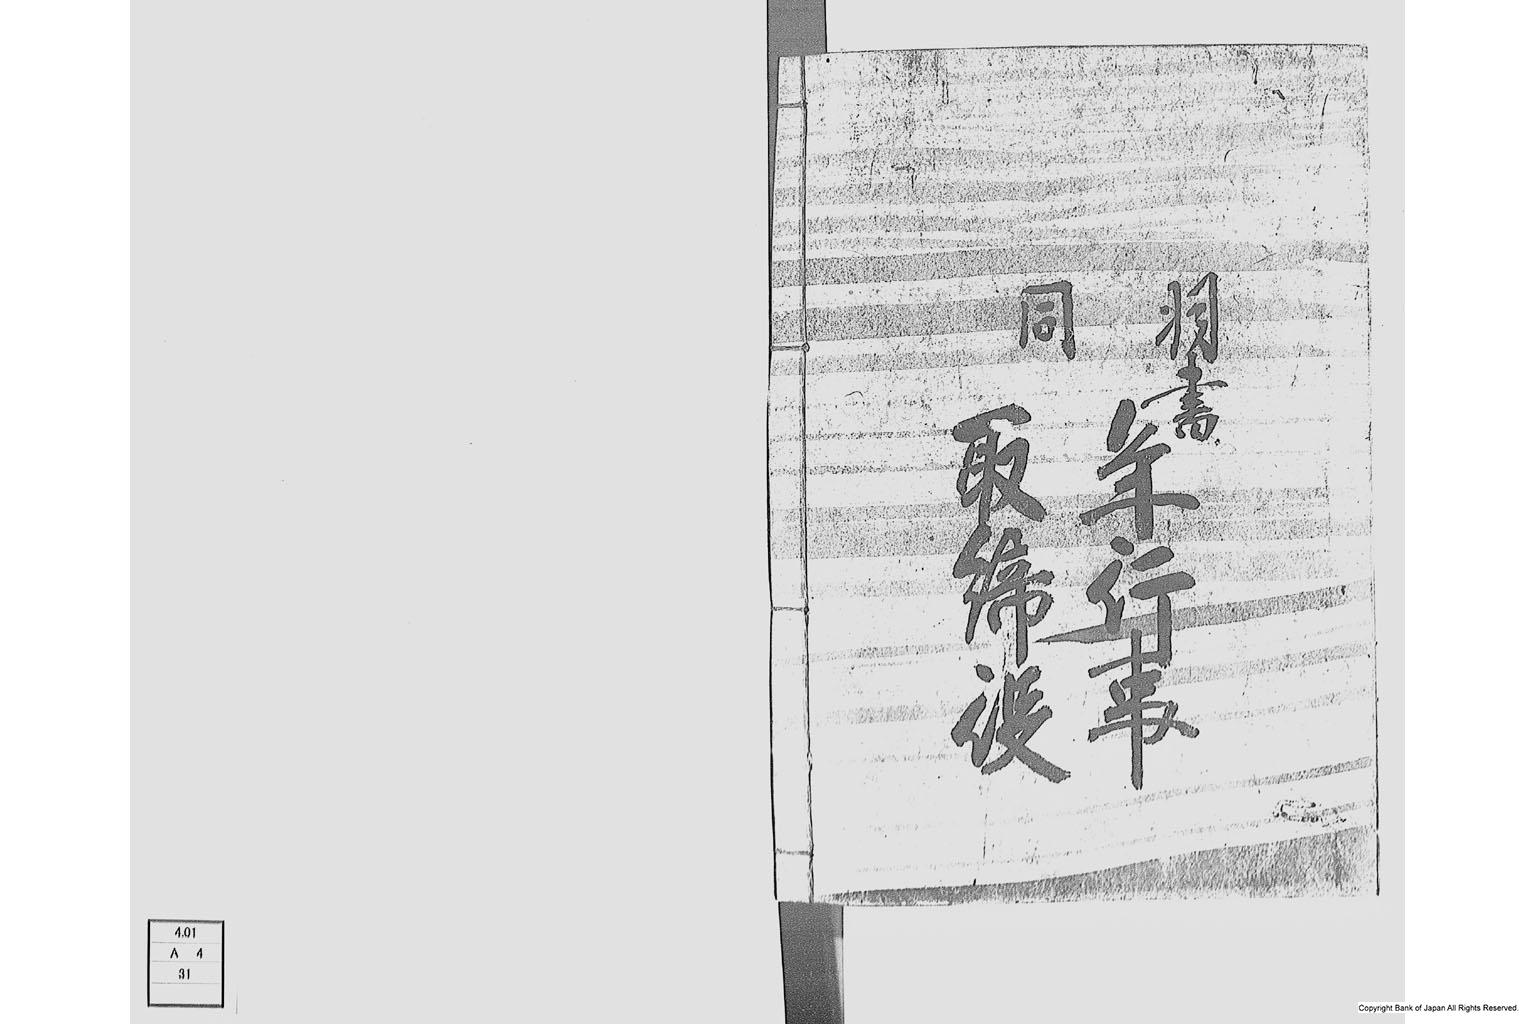 羽書
年行事
同
取締役
4.01
A 4
31
Copyright Bank of Japan All Rights Reserved.